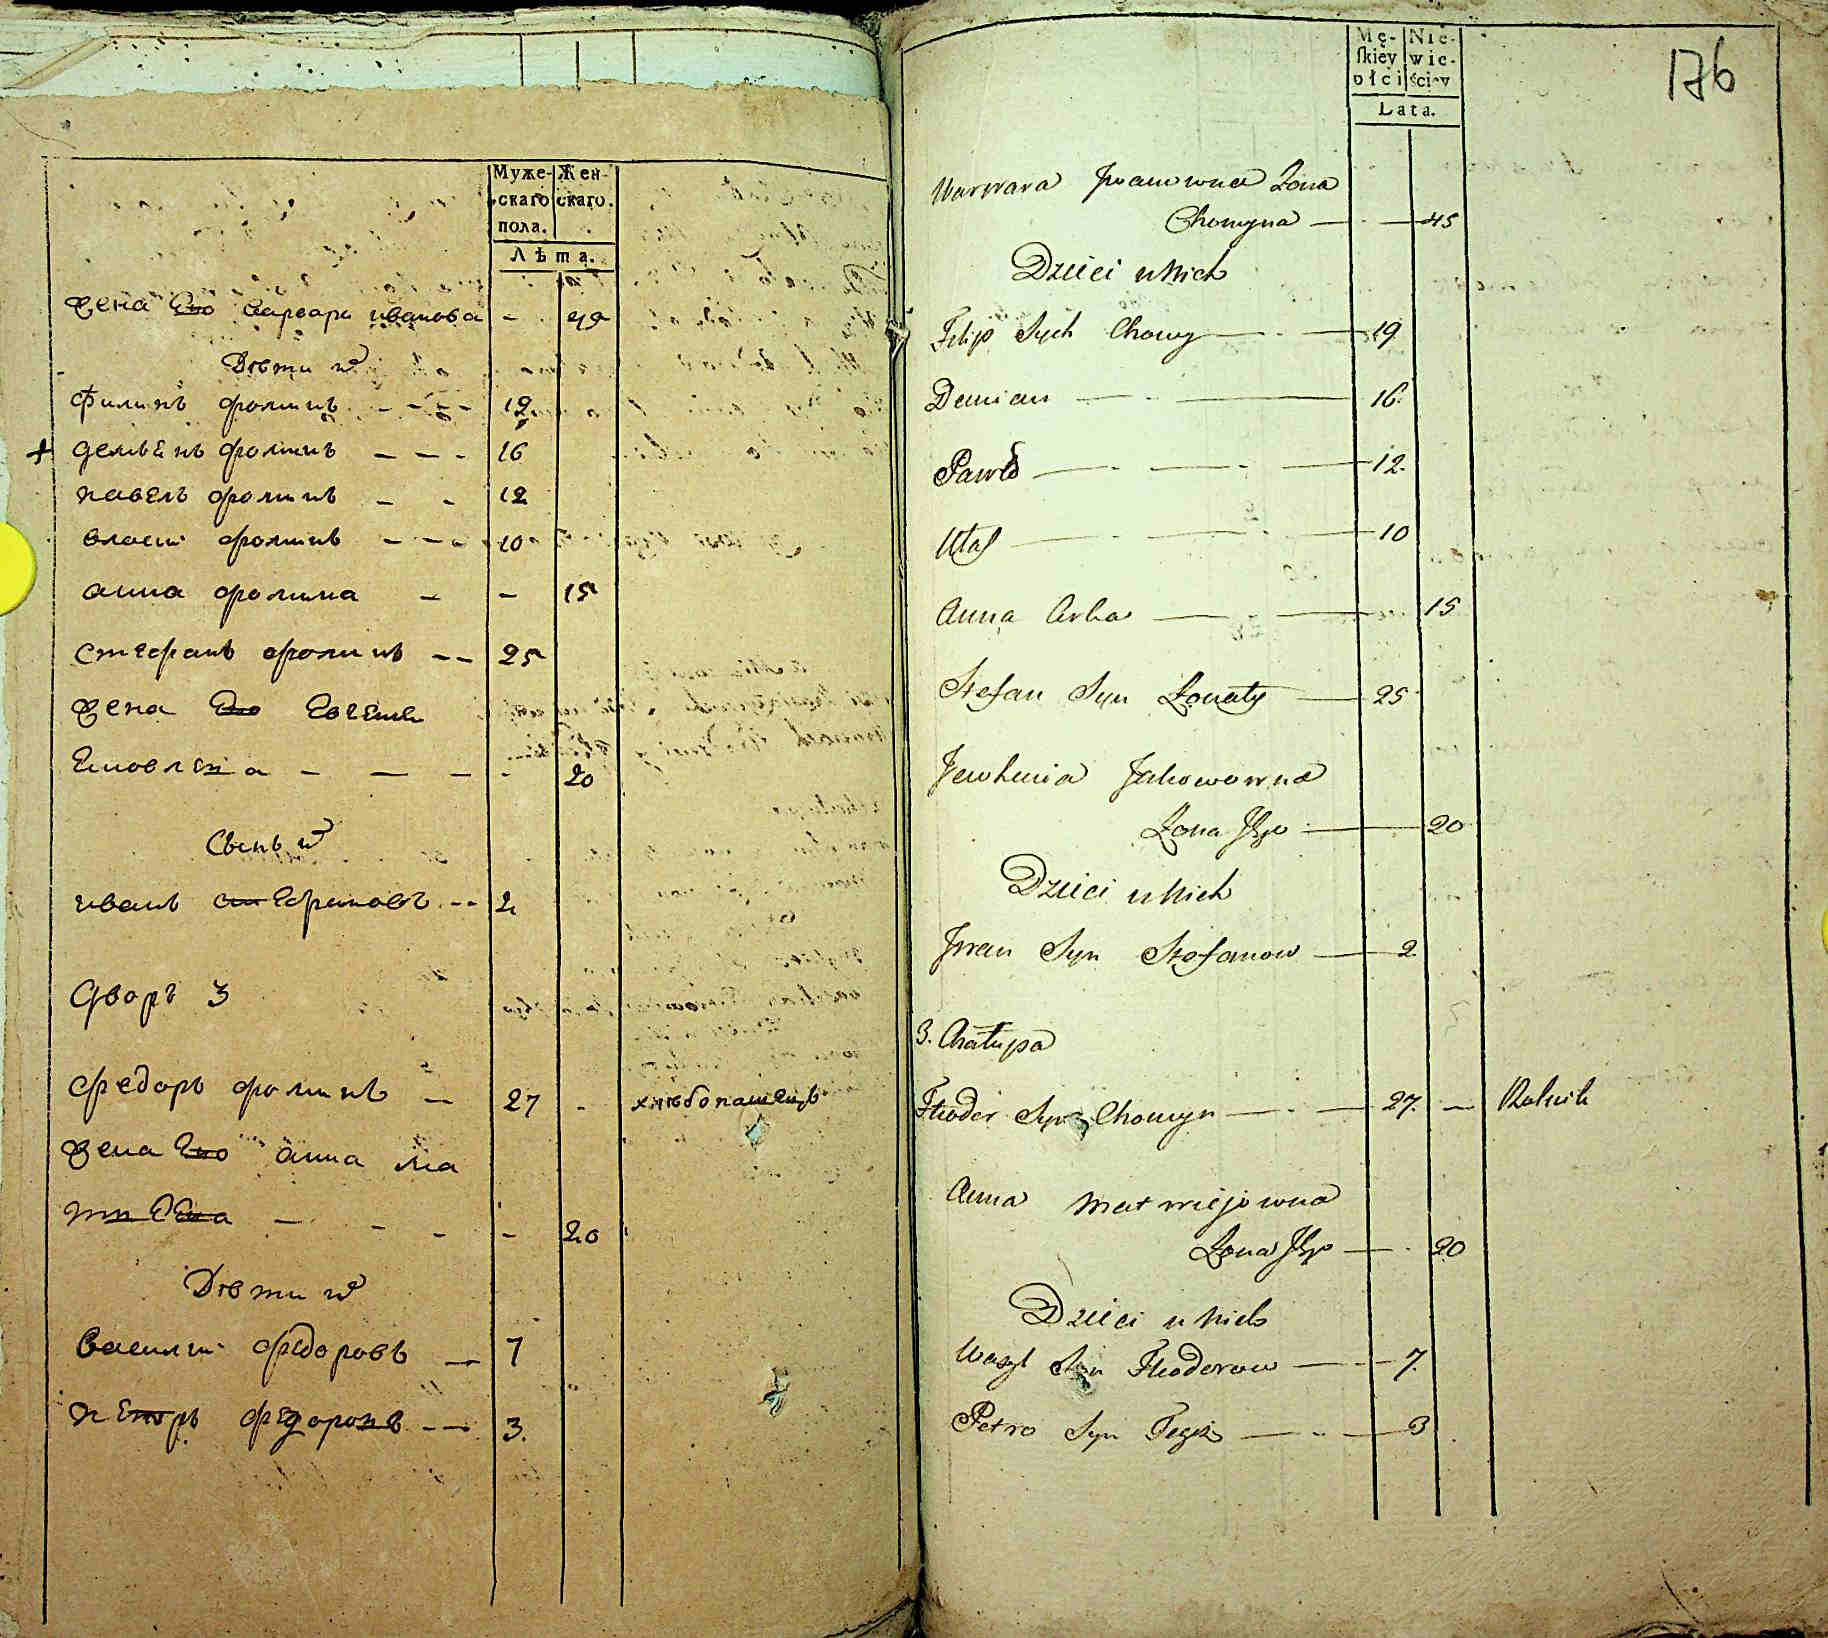 Муже-
скаго
пола.
Жен-
скаго.
Лѣта.
жена его варвара иванова - 45
Дѣти их
филипъ фоминъ - - - - 19
+ демъенъ фоминъ - - - 16
павелъ фоминъ - - 12
власи фоминъ - - - 10
анна фомина - - 15
стефанъ фоминъ - - 25
жена его евгениа
яковлена - - - - 20
Сынъ их
иванъ стефановъ - - 2
дворъ 3
федоръ фоминъ - 27 - хлѣбопашецъ
жена его анна ма
тиеена - - - - 20
Дѣти их
василии федоровъ - 7
петръ федоровъ - - 3.
176
Mę-
ſkiey
płci
Nie-
wie-
ściey
Lata.
Warwara Jwanowna Zona
Chomyna — - — 45
Dzieci u Nich
Filip Syn Chomy — - — 19
Demian — - — 16.
Pawło — - — - — 12.
Ułas — - — - — 10
Anna Corka — - — 15
Stefan Syn Zonaty — 25
Jewhenia Jakowowna
Zona Jego — 20
Dzieci u Nich
Jwan Syn Stefanow — 2
3. Chałupa
Fteodor Syn Chomyn — - — 27. — Rolnik
Anna Matwiejowna
Zona Jego — . 20
Dzieci u Nich
Wasyl Syn Fteodorow — - — 7.
Petro Syn Tegoż — - — 3